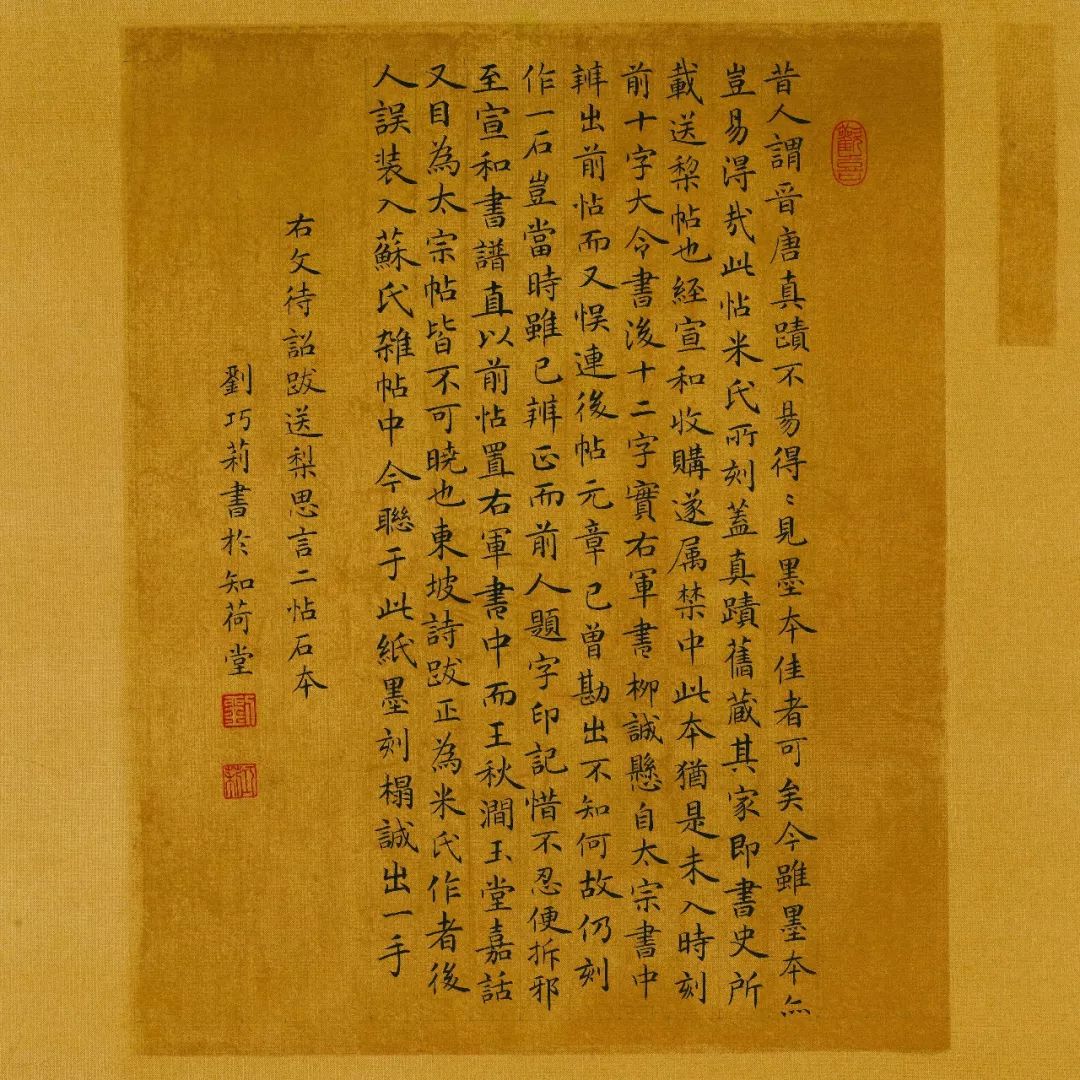 昔人謂晉唐真蹟不易得〻見墨本佳者可矣今雖墨本亦
豈易得㢤此帖米氏所刻蓋真蹟舊蔵其家即書史所
載送棃帖也經宣和收購遂属禁中此本猶是未入時刻
前十字大令書後十二字實右軍書柳誠懸自太宗書中
辨出前帖而又悮連後帖元章已曽勘出不知何故仍刻
作一石豈當時雖已辨正而前人題字印記惜不忍便拆邪
至宣和書譜直以前帖置右軍書中而王秋澗玉堂嘉話
又目為太宗帖皆不可曉也東坡詩跋正為米氏作者後
人誤装入蘇氏雑帖中今聯于此紙墨刻榻誠出一手
右文待詔跋送梨思言二帖石本
劉巧莉書於知荷堂